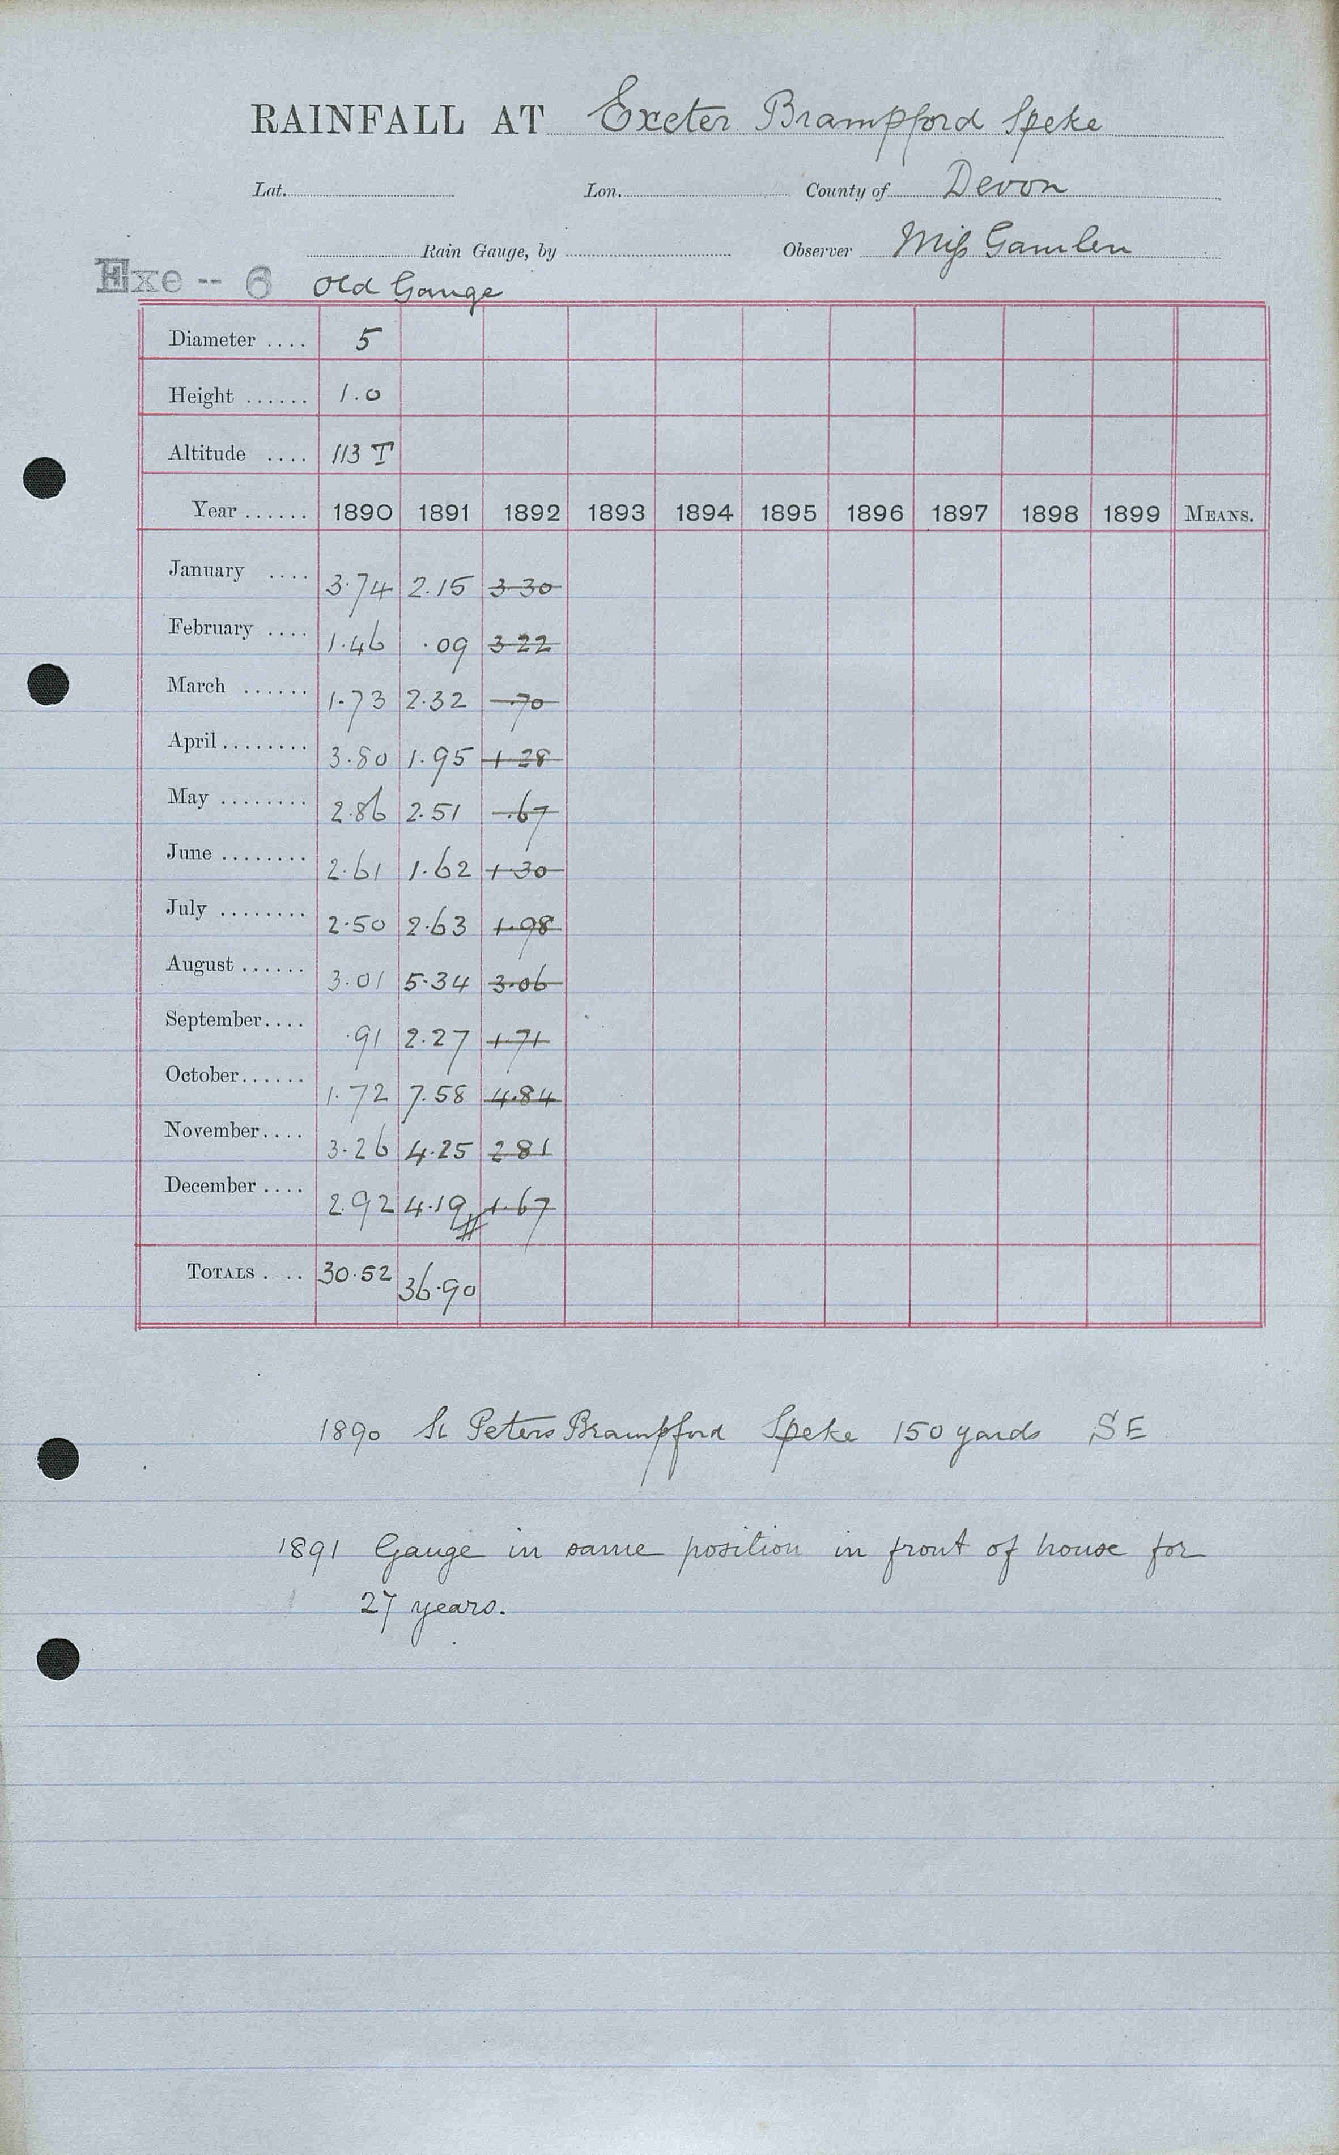 RAINFALL AT Exeter Brampford Speke
Lat. Lon. County of Devon
Rain Gauge, by Observer Miss Gamlen
Exe -- 6 Old Gauge
Diameter .... 5
Height ...... 1.0
Altitude .... 113 T
Year ...... 1890 1891 1892 1893 1894 1895 1896 1897 1898 1899 MEANS.
January .... 3.74 2.15 3 30
February .... 1.46 .09 3 22
March ...... 1.73 2.32 .70
April ........ 3.80 1.95 1 28
May ........ 2.86 2.51 .67
June ........ 2.61 1.62 1 30
July ........ 2.50 2.63 1.98
August ...... 3.01 5.34 3.06
September.... .91 2.27 1.71
October...... 1.72 7.58 4.84
November.... 3.26 4.25 2 81
December .... 2.92 4.19 1.67
TOTALS . .. 30.52 36.90
1890 St Peters Brampford Speke 150 yards SE
1891 Gauge in same position in front of house for
27 years.